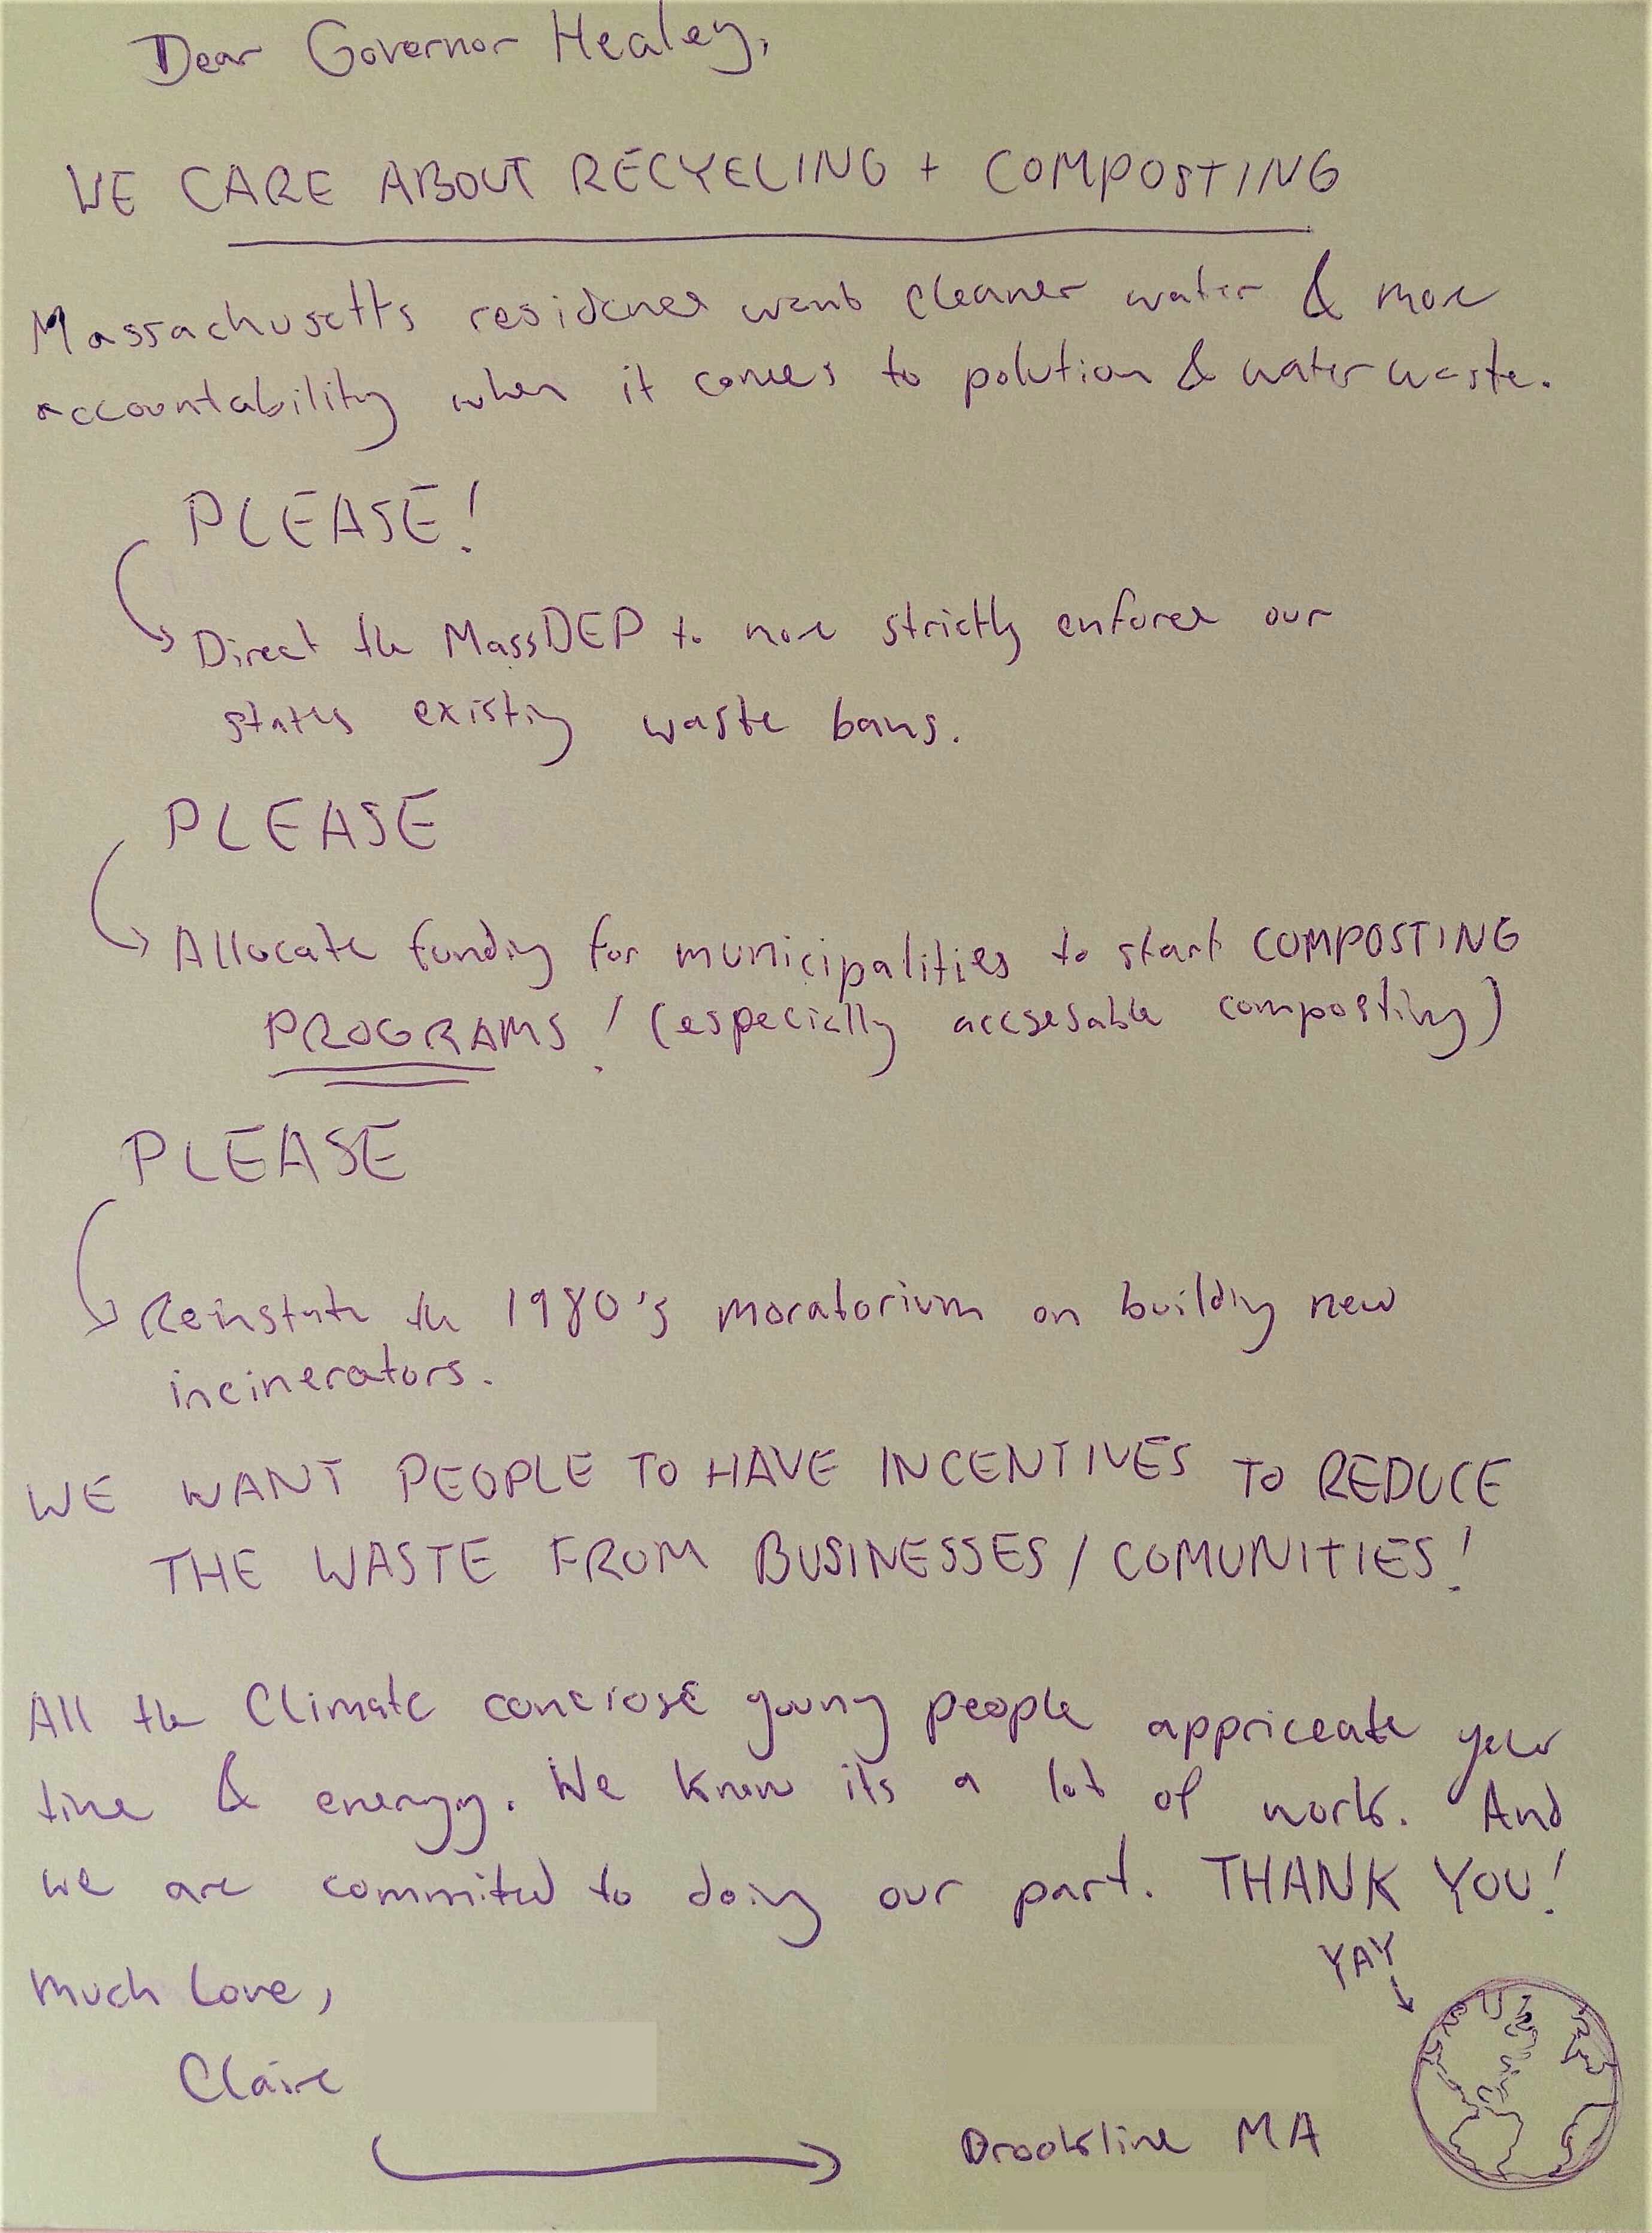 Dear Governor Healey,
WE CARE ABOUT RECYCLING + COMPOSTING
Massachusetts residence want cleaner water & more
accountability when it comes to polution & water waste.
PLEASE!
Direct the MassDEP to more strictly enforce our
states existing waste bans.
PLEASE
Allocate funding for municipalities to start COMPOSTING
PROGRAMS! (especially accsesable composting)
PLEASE
Reinstate the 1980's moratorium on building new
incinerators.
WE WANT PEOPLE TO HAVE INCENTIVES TO REDUCE
THE WASTE FROM BUSINESSES/COMUNITIES!
All the Climate conciose young people appriceate your
time & energy. We know its a lot of work. And
we are commited to doing our part. THANK YOU!
YAY
Much Love,
Claire
Brookline MA